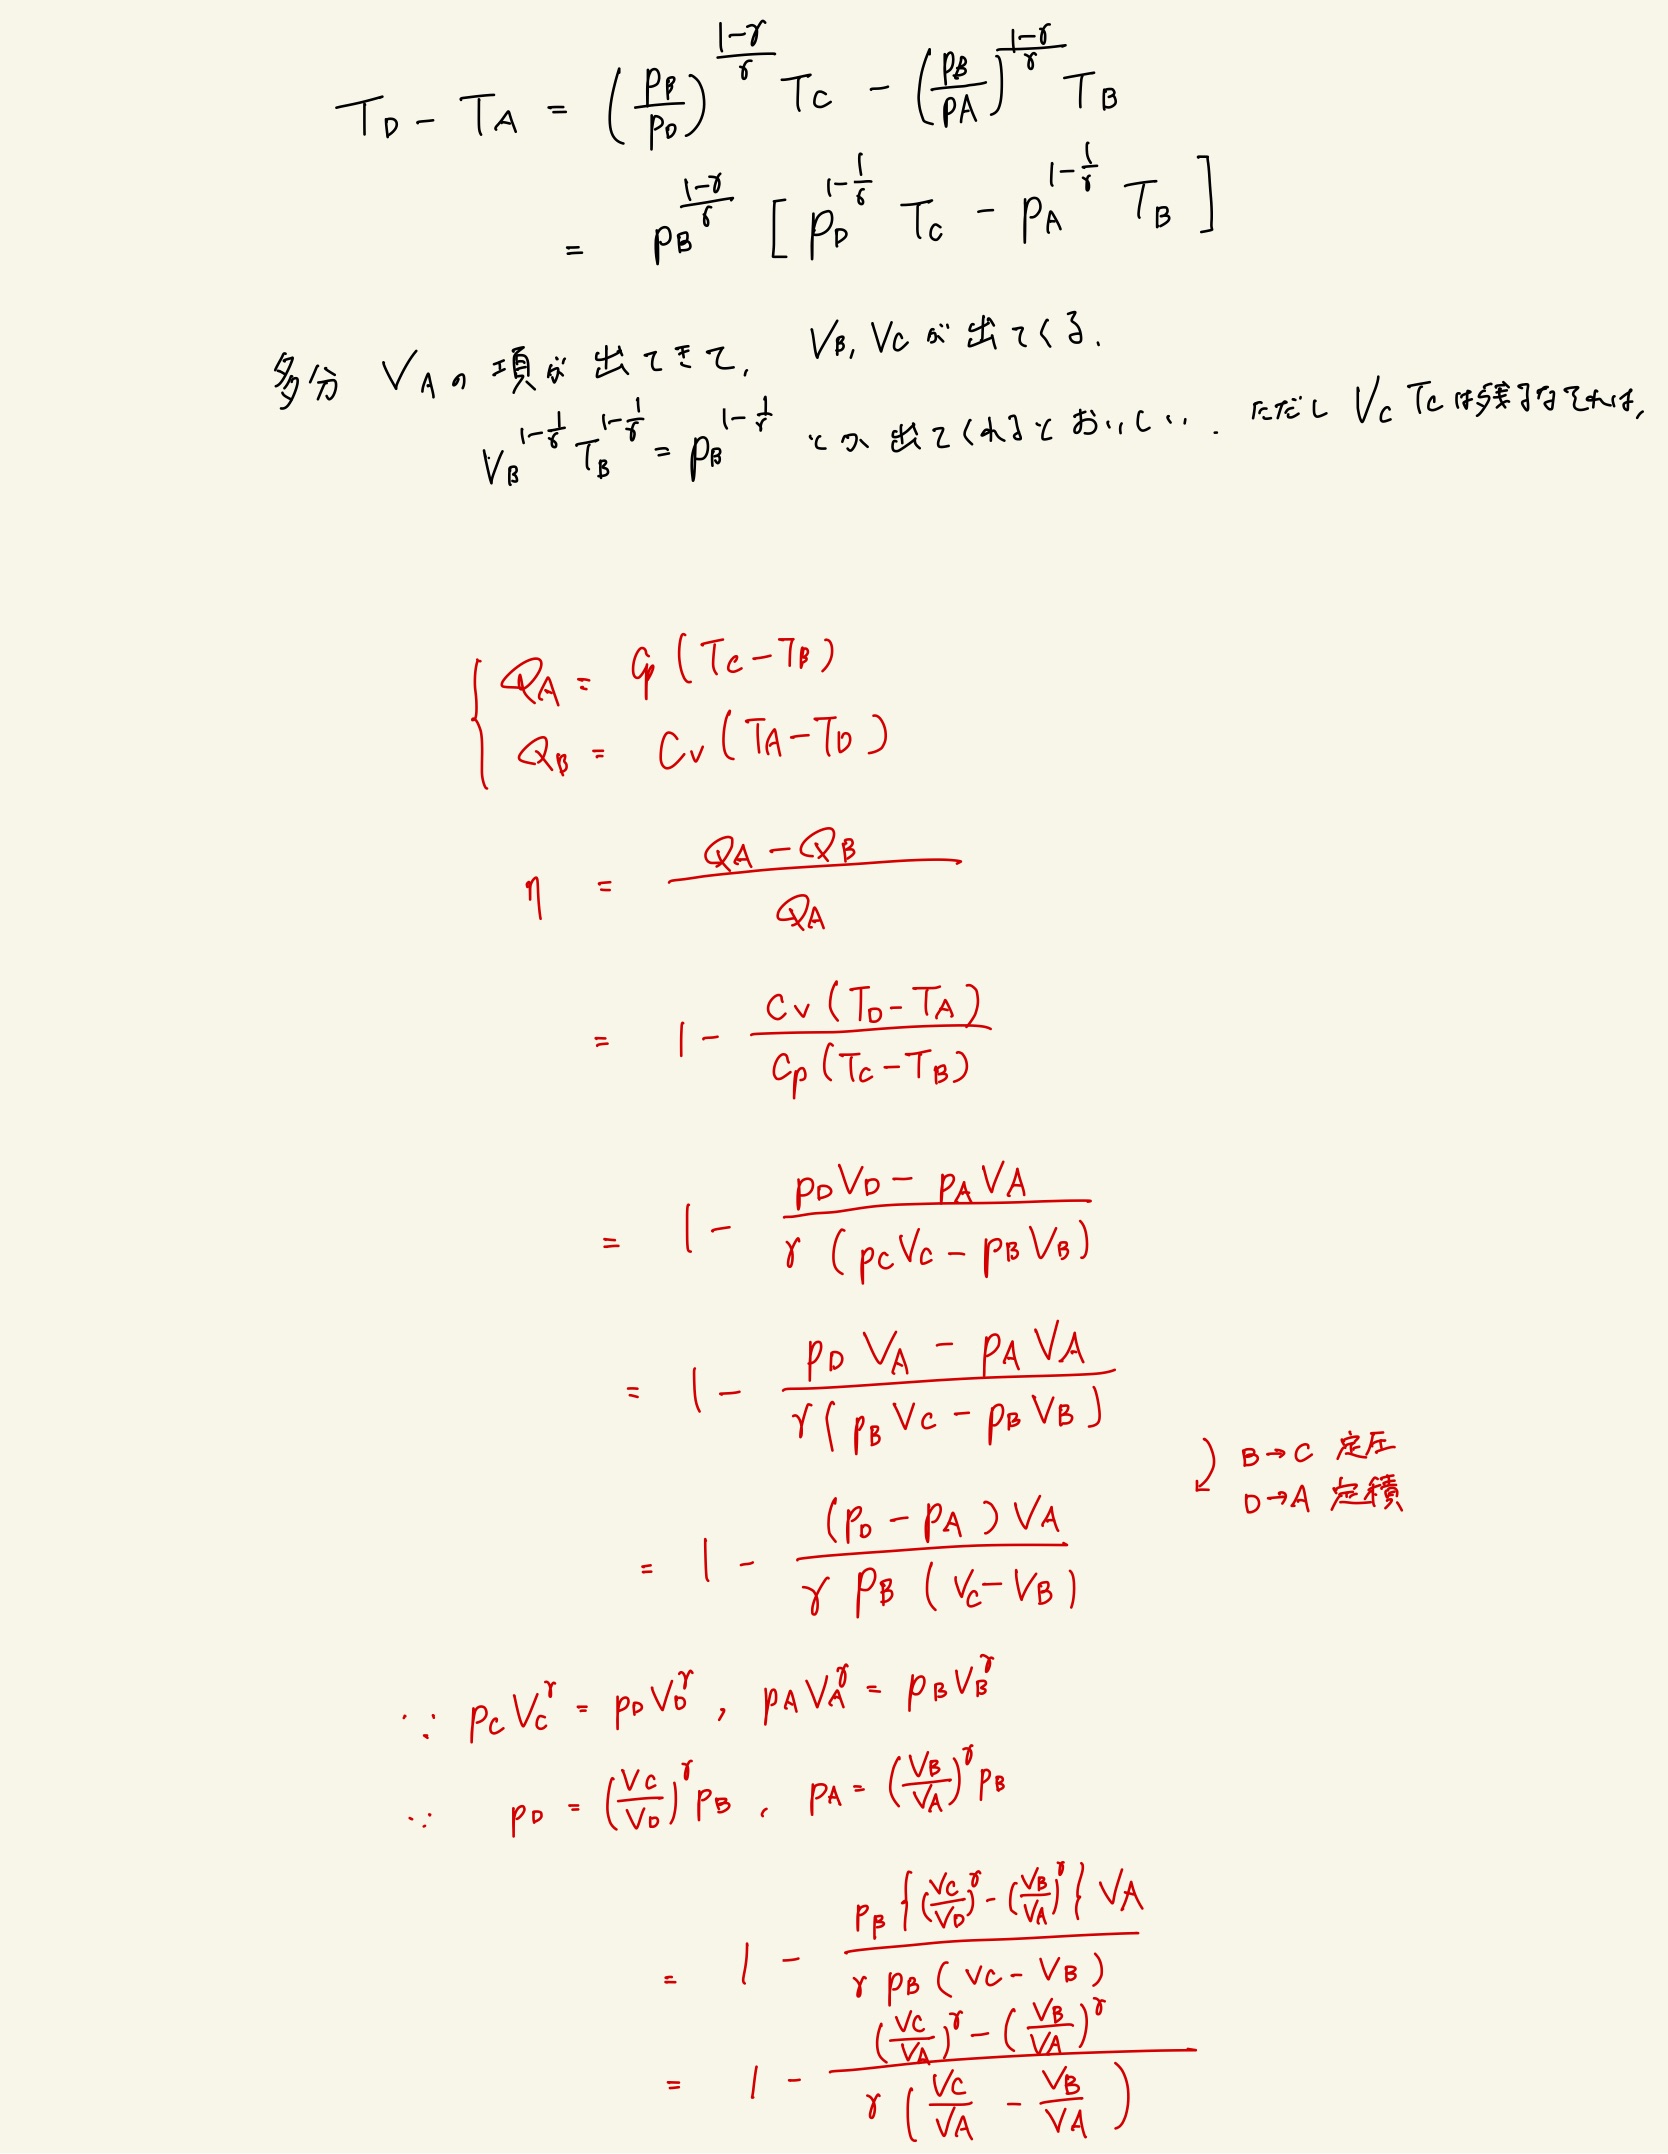 T_D - T_A = (p_B/p_D)^{(1-γ)/γ} T_C - (p_B/p_A)^{(1-γ)/γ} T_B
= p_B^{(1-γ)/γ} [ p_D^{1-1/γ} T_C - p_A^{1-1/γ} T_B ]
多分 V_A の 項が 出てきて, V_B, V_C が 出てくる.
V_B^{1-1/γ} T_B^{1-1/γ} = p_B^{1-1/γ} とか 出てくれるとおいしい. ただし V_C T_C は残るなそれは,
{ Q_A = C_p (T_C - T_B)
Q_B = C_V (T_A - T_D)
η = (Q_A - Q_B)/Q_A
= 1 - C_V (T_D - T_A)/C_p (T_C - T_B)
= 1 - (p_D V_D - p_A V_A)/γ (p_C V_C - p_B V_B)
= 1 - (p_D V_A - p_A V_A)/γ (p_B V_C - p_B V_B)
⤵ B→C 定圧
D→A 定積
= 1 - (p_D - p_A) V_A/γ p_B (V_C - V_B)
∵ p_C V_C^γ = p_D V_D^γ, p_A V_A^γ = p_B V_B^γ
∵ p_D = (V_C/V_D)^γ p_B, p_A = (V_B/V_A)^γ p_B
= 1 - p_B {(V_C/V_D)^γ - (V_B/V_A)^γ} V_A/γ p_B (V_C - V_B)
= 1 - ((V_C/V_A)^γ - (V_B/V_A)^γ)/γ (V_C/V_A - V_B/V_A)